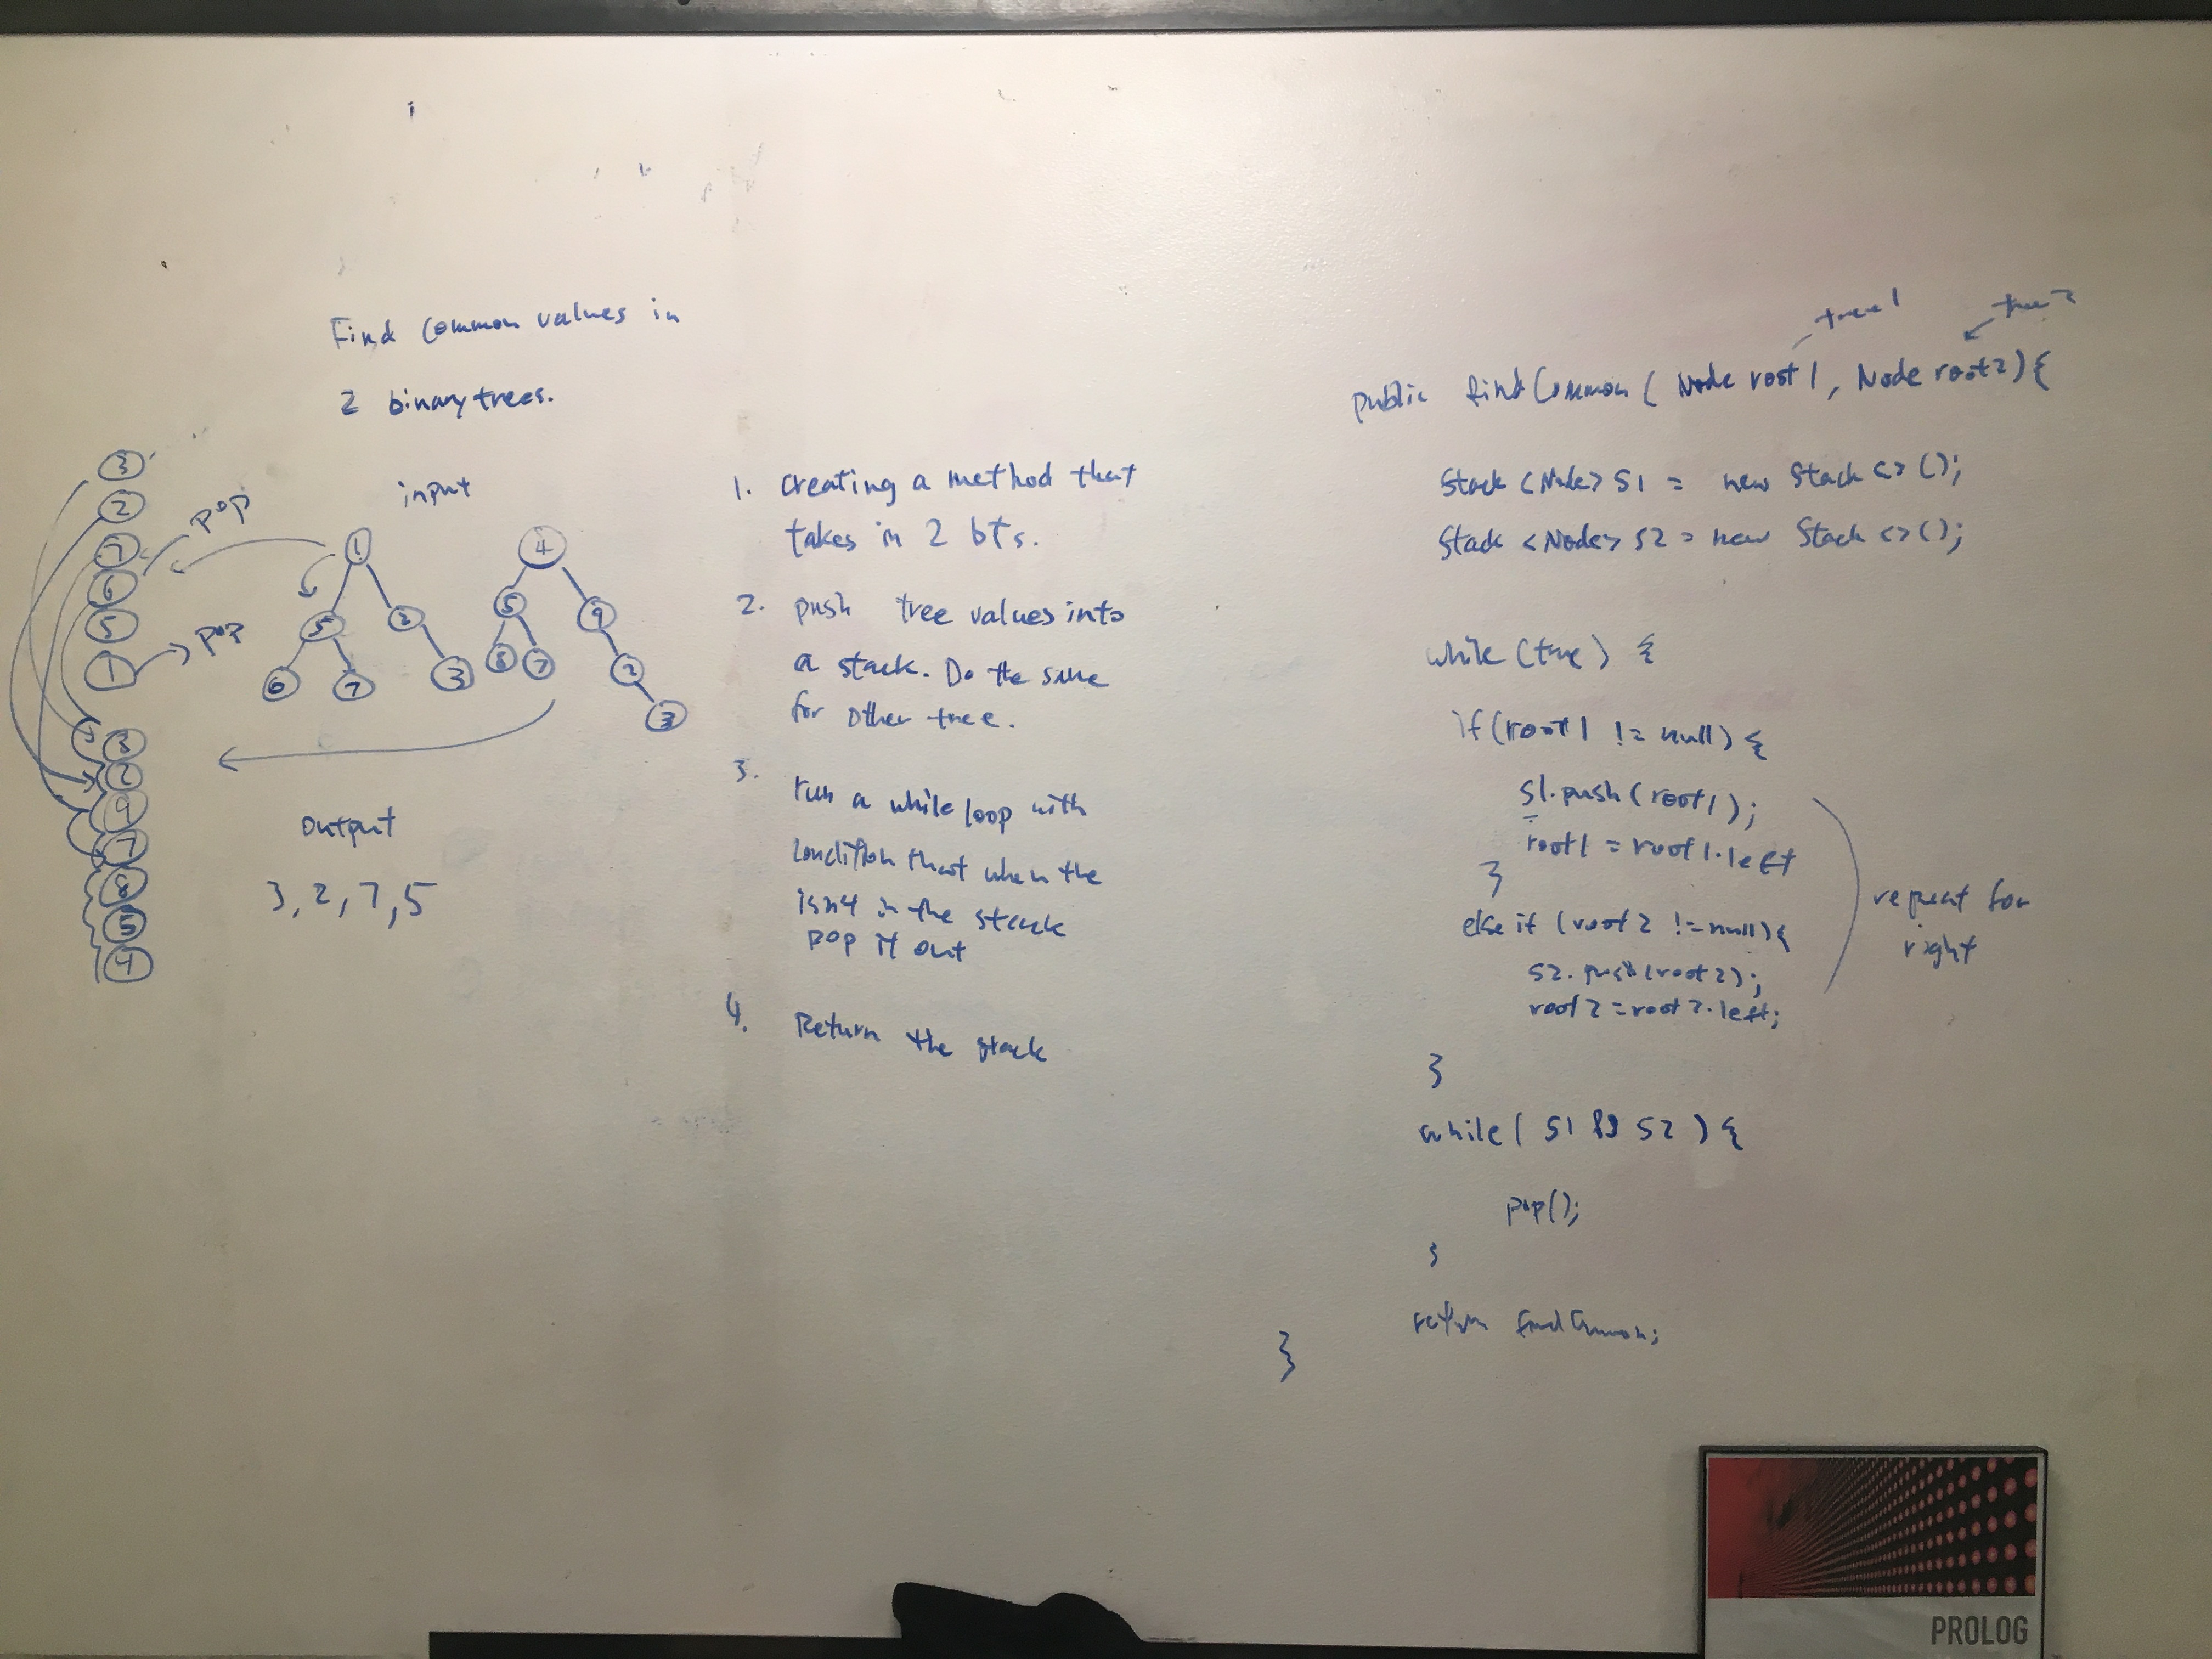 Find Common values in
2 binary trees.
input
3
2
7
6
5
1
pop
pop
1
5
2
6
7
3
4
5
9
8
7
2
3
3
2
9
7
8
5
4
output
3, 2, 7, 5
1. Creating a method that
takes in 2 bts.
2. push tree values into
a stack. Do the same
for other tree.
3.
run a while loop with
condition that when the
isnt in the stack
pop it out
4. Return the stack
tree1
tree2
public findCommon ( Node root1, Node root2) {
Stack <Node> S1 = new Stack <> ();
Stack <Node> S2 = new Stack <> ();
while (true) {
if (root1 != null) {
S1.push (root1);
root1 = root1.left
}
else if (root2 != null) {
S2.push (root2);
root2 = root2.left;
repeat for
right
}
while ( S1 && S2 ) {
pop();
}
return findCommon;
}
PROLOG